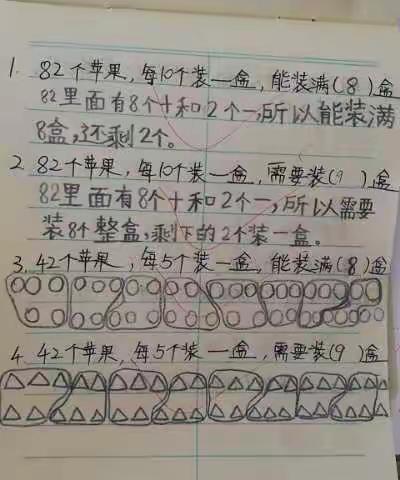 1. 82个苹果,每10个装一盒,能装满(8)盒
82里面有8个十和2个一,所以能装满
8盒,还剩2个。
2. 82个苹果,每10个装一盒,需要装(9)盒
82里面有8个十和2个一,所以需要
装8个整盒,剩下的2个装一盒。
3. 42个苹果,每5个装一盒,能装满(8)盒
4. 42个苹果,每5个装一盒,需要装(9)盒